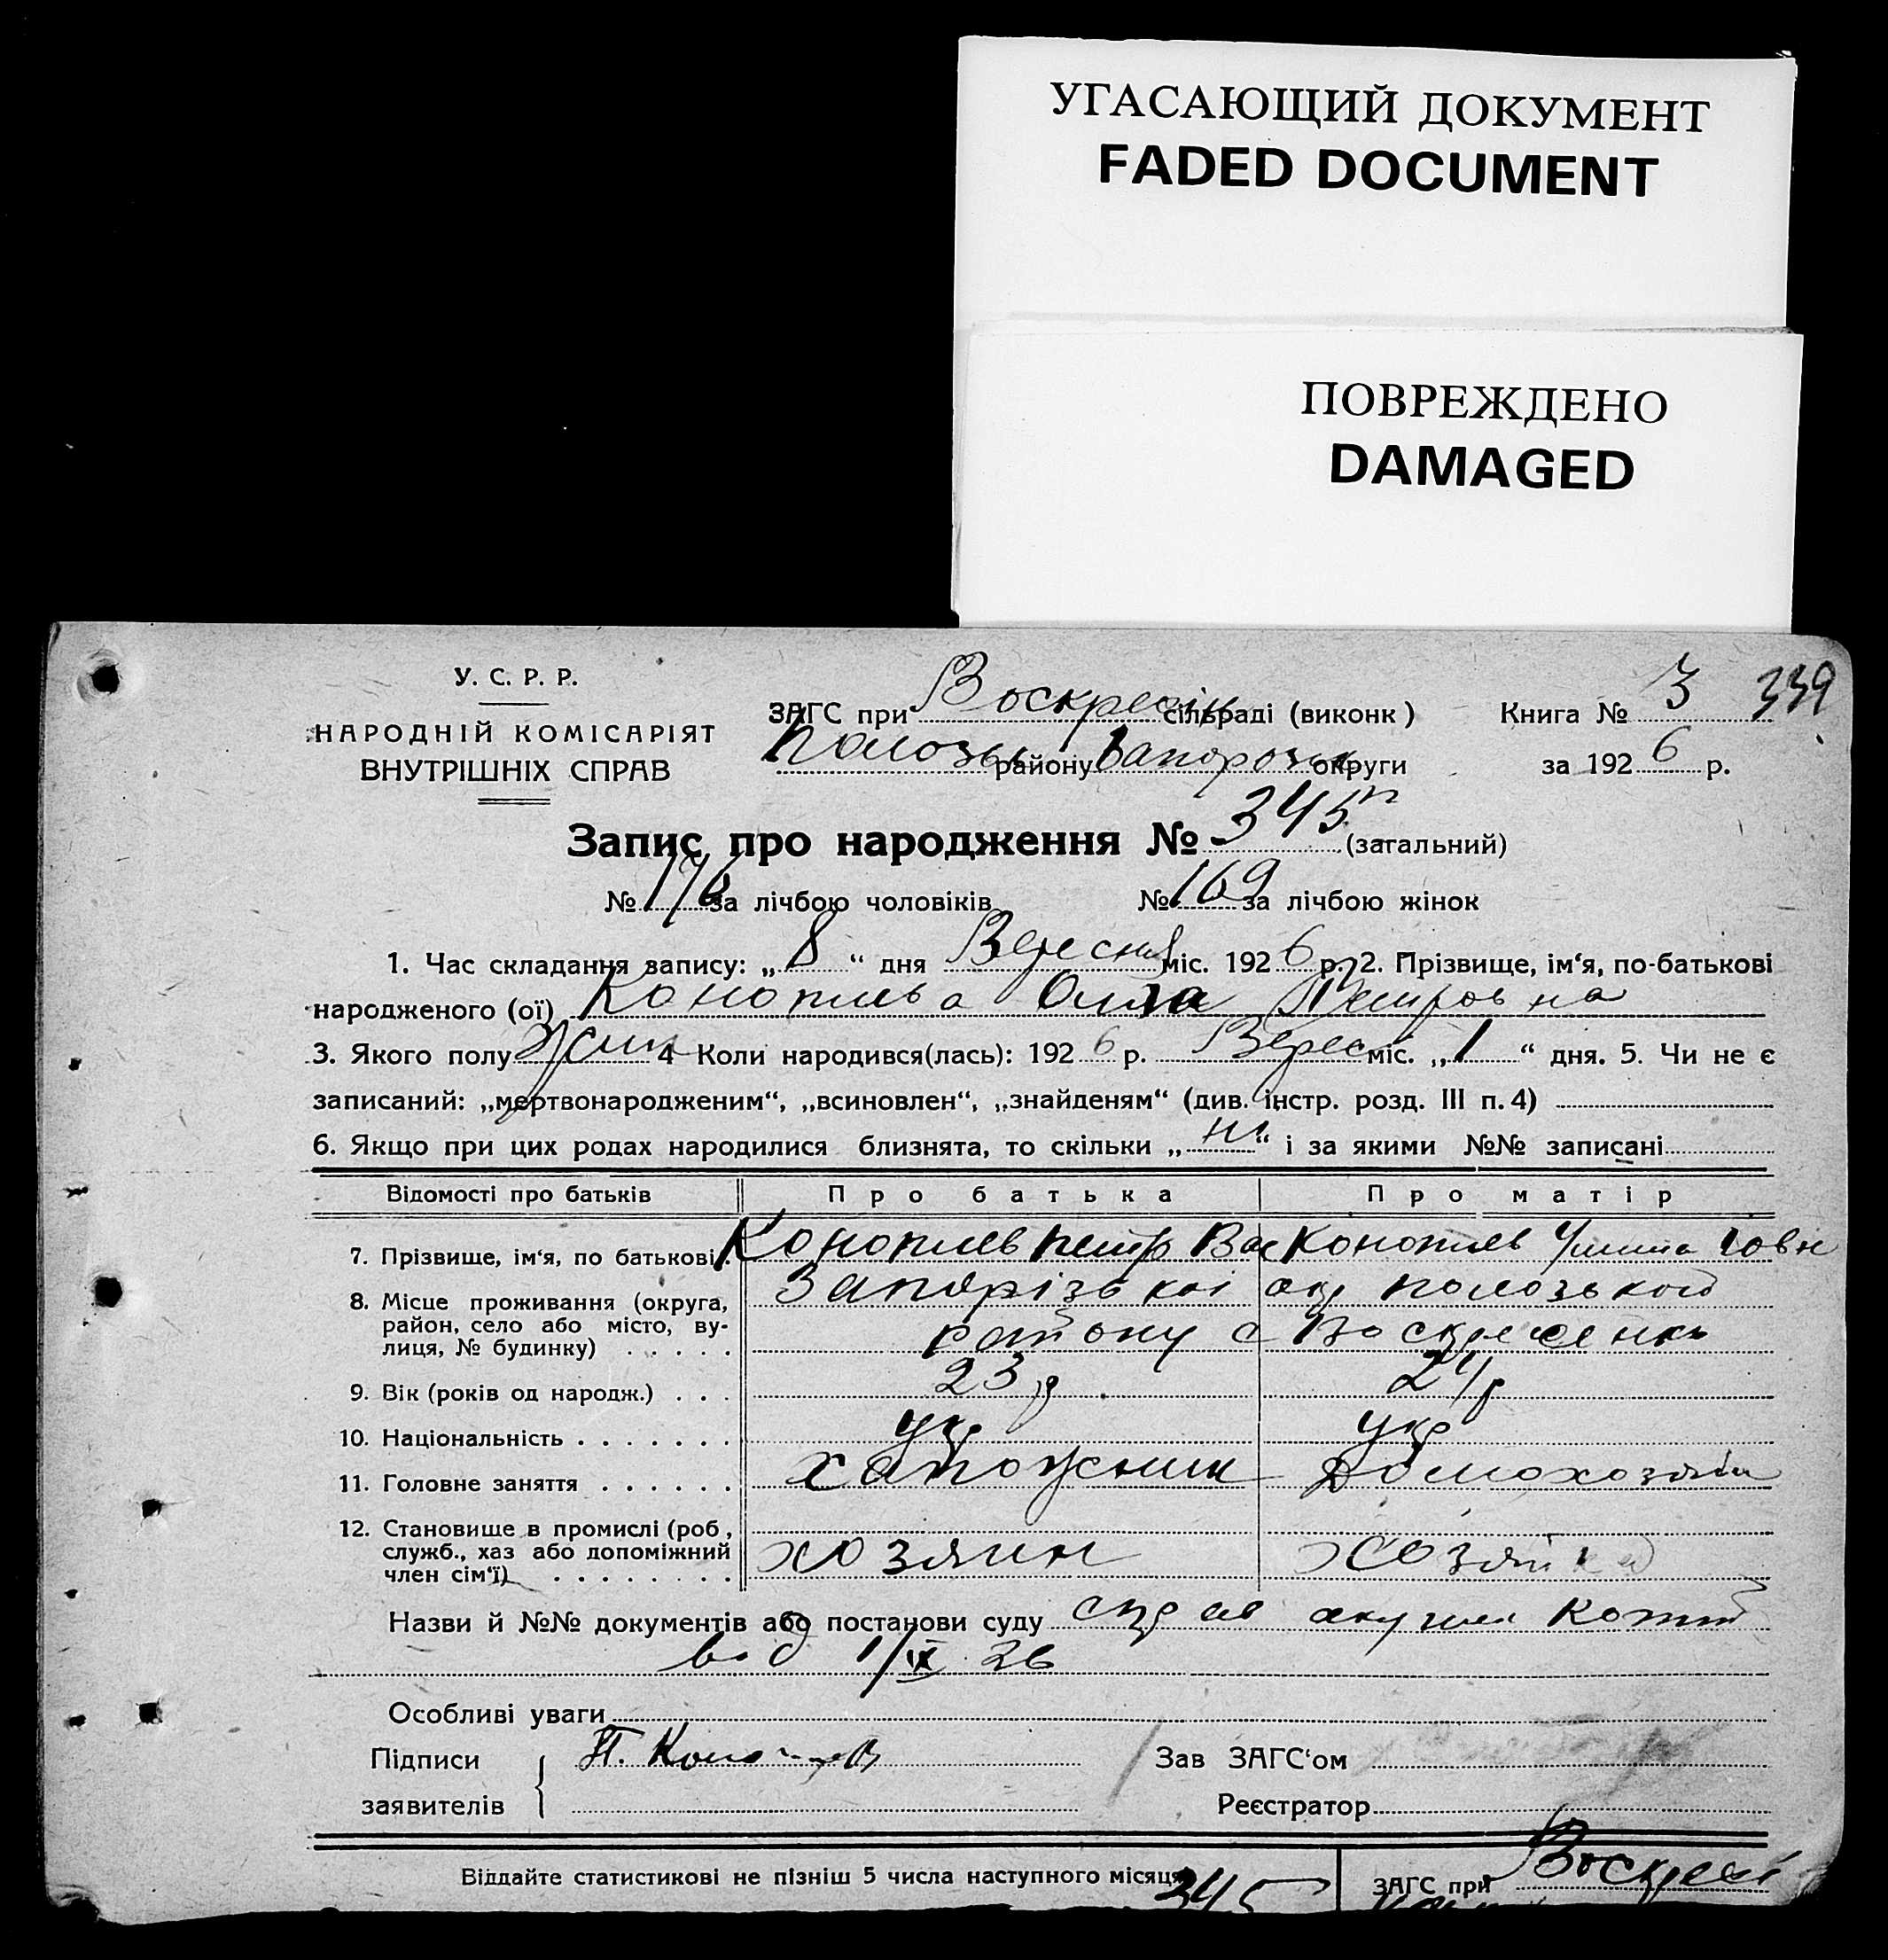 УГАСАЮЩИЙ ДОКУМЕНТ
FADED DOCUMENT
ПОВРЕЖДЕНО
DAMAGED
У. С. Р. Р.
НАРОДНІЙ КОМІСАРІЯТ
ВНУТРІШНІХ СПРАВ
ЗАГС при Воскресін сільраді (виконк)
Книга № 3 339
району Запорозьк округи
за 1926 р.
Запис про народження № 345 (загальний)
№ 176 за лічбою чоловіків № 169 за лічбою жінок
1. Час складання запису: „ 8 “ дня Вересня міс. 1926 р. 2. Прізвище, ім‘я, по-батькові
народженого (ої) Конопльва Петровна
3. Якого полу жин 4 Коли народився(лась): 1926 р. Верес міс. „ 1 “ дня. 5. Чи не є
записаний: „мертвонародженим“, „всиновлен“, „знайденям“ (див. інстр. розд. III п. 4)
6. Якщо при цих родах народилися близнята, то скільки „ ні “ і за якими №№ записані
Відомості про батьків Про батька Про матір
7. Прізвище, ім‘я, по батькові. Коноплев Петр Вас Коноплев
8. Місце проживання (округа, район, село або місто, вулиця, № будинку) Запорізькоі окр Полозького
району с Воскресенка
9. Вік (років од народж.) 23 р 21 р
10. Національність укр укр
11. Головне заняття Домохозяй
12. Становище в промислі (роб, служб., хаз або допоміжний член сім‘ї) хозяин хозяйка
Назви й №№ документів або постанови суду
від 1/IX 26
Особливі уваги
Підписи П. Коноплев Зав ЗАГС‘ом
заявителів Реєстратор
Віддайте статистикові не пізніш 5 числа наступного місяця
345
ЗАГС при Воскресі